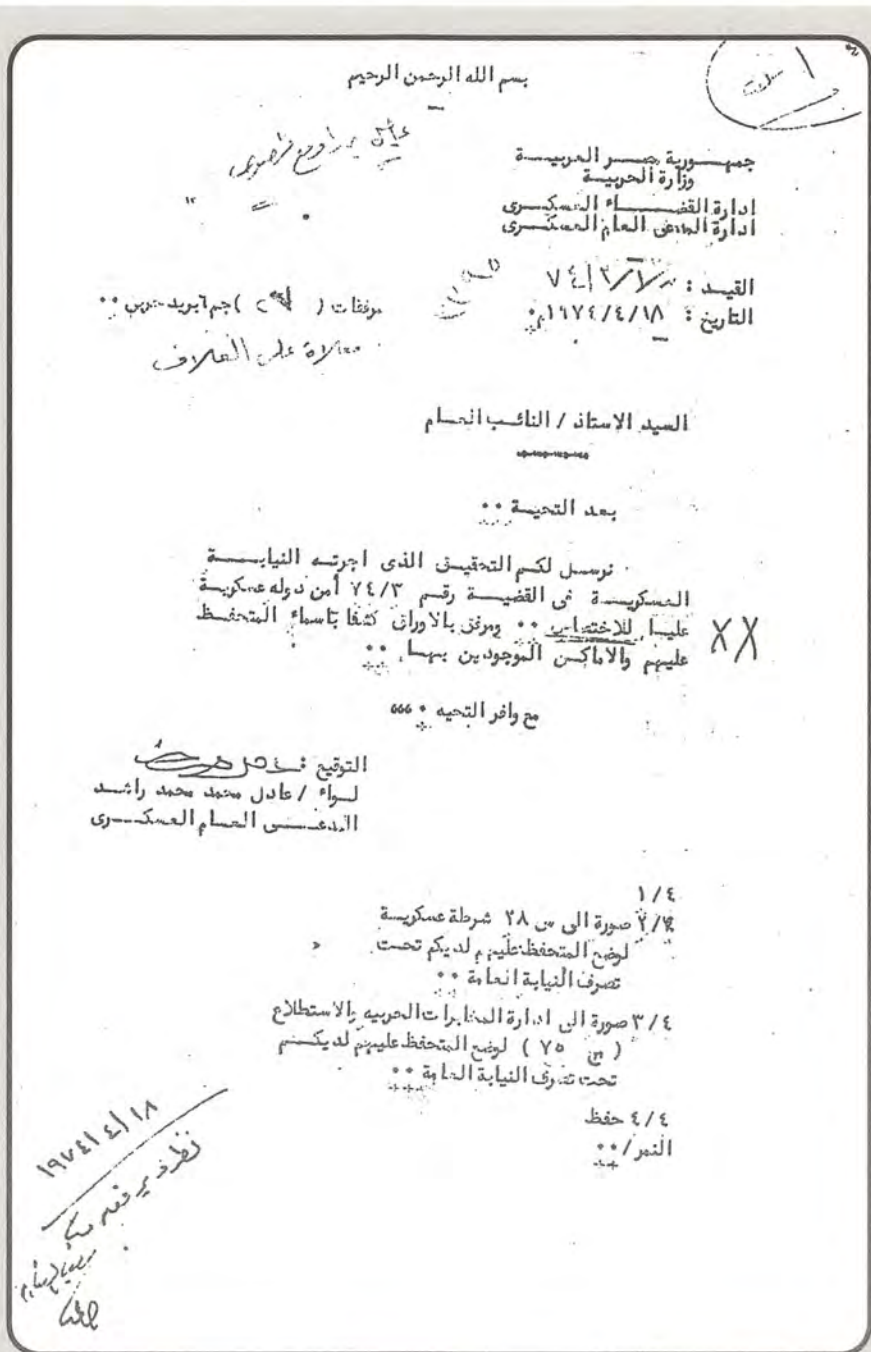 بسم الله الرحمن الرحيم
جمهورية مصر العربية
وزارة الحربية
ادارة القضاء العسكرى
ادارة المدعى العام العسكرى
القيد : ٧٤/٣/
التاريخ : ١٩٧٤/٤/١٨م
مرفقات ( )
السيد الاستاذ / النائب العام
بعد التحية ٠٠
نرسل لكم التحقيق الذى اجرته النيابة
العسكرية فى القضية رقم ٧٤/٣ أمن دوله عسكرية
عليا للاختصاص ٠٠ ومرفق بالاوراق كشفا بأسماء المتحفظ
عليهم والاماكن الموجودين بها ٠٠
XX
مع وافر التحيه ٠
التوقيع :
لواء / عادل محمد محمد راشد
المدعى العام العسكرى
١/٤
٢/٤ صورة الى س ٢٨ شرطة عسكرية
لوضع المتحفظ عليهم لديكم تحت
تصرف النيابة العامة ٠٠
٣/٤ صورة الى ادارة المخابرات الحربيه والاستطلاع
( س ٧٥ ) لوضع المتحفظ عليهم لديكم
تحت تصرف النيابة العامة ٠٠
٤/٤ حفظ
النمر/٠٠
١٩٧٤/٤/١٨